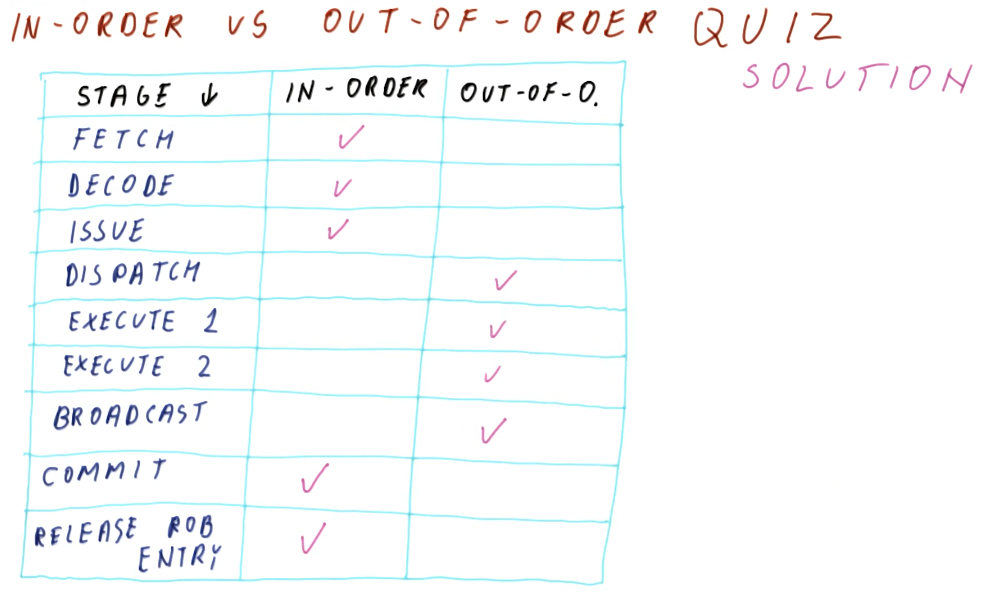 IN-ORDER VS OUT-OF-ORDER QUIZ
SOLUTION
STAGE ↓ IN-ORDER OUT-OF-O.
FETCH ✓
DECODE ✓
ISSUE ✓
DISPATCH ✓
EXECUTE 1 ✓
EXECUTE 2 ✓
BROADCAST ✓
COMMIT ✓
RELEASE ROB ✓
ENTRY